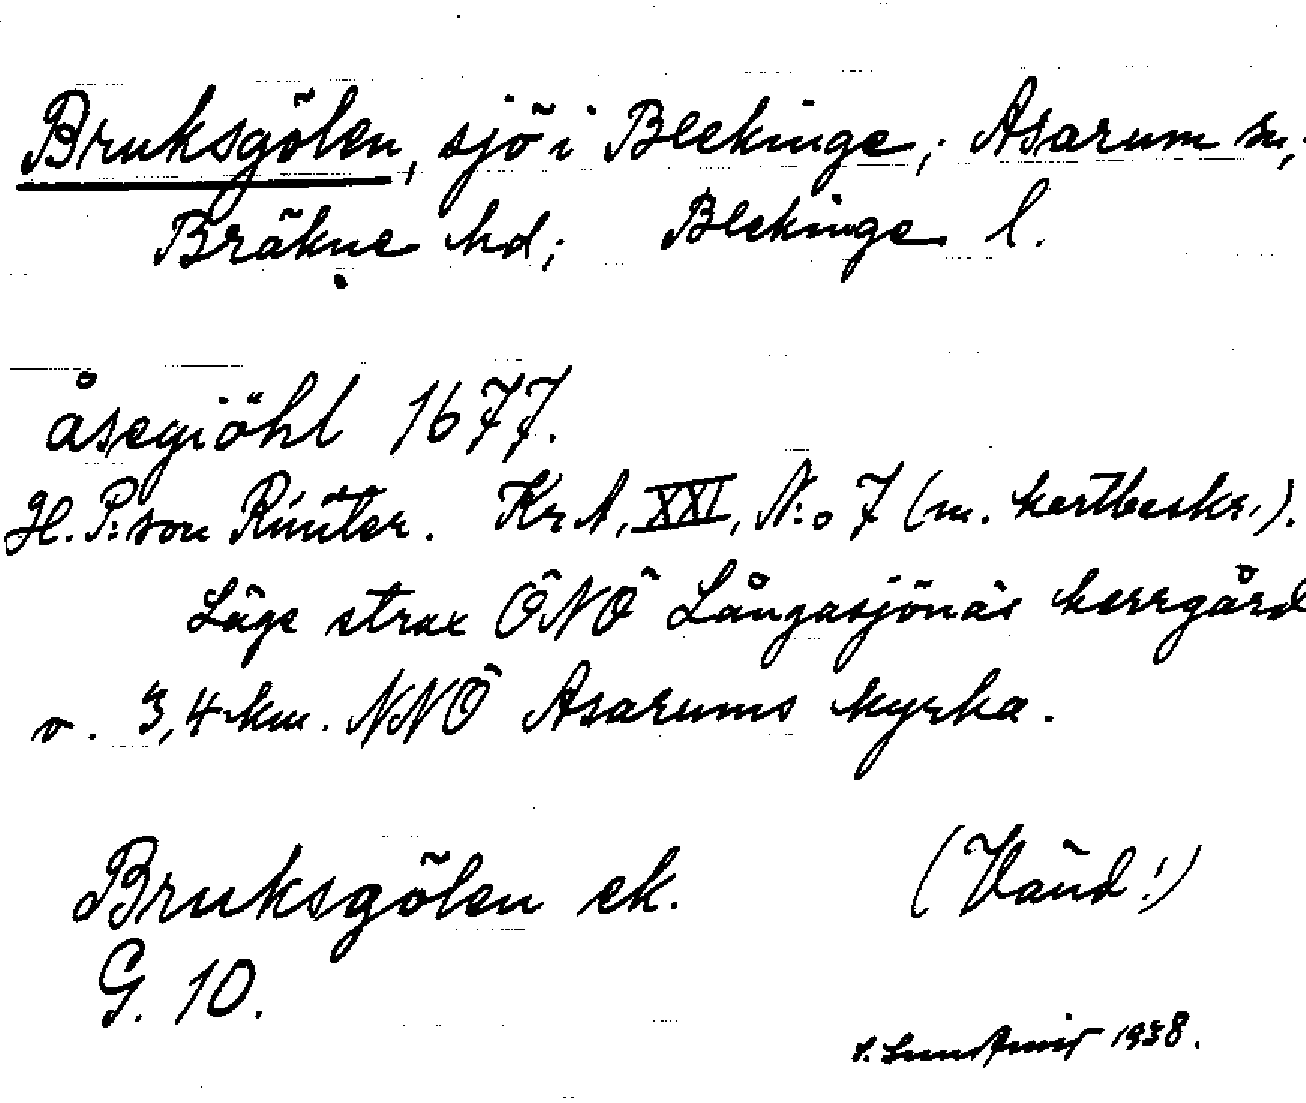 Bruksgölen, sjö i Blekinge; Asarum sn,
Bräkne hd; Blekinge l.
åsegiöhl 1677.
H. P:son Ruuter. Kr A, XXI, N:o 7 (m. kartbeskr.).
Läge strax ÖNÖ Långasjönäs herrgård
o. 3,4 km. NNÖ Asarums kyrka.
Bruksgölen ek. (Vänd!)
G. 10.
1938.